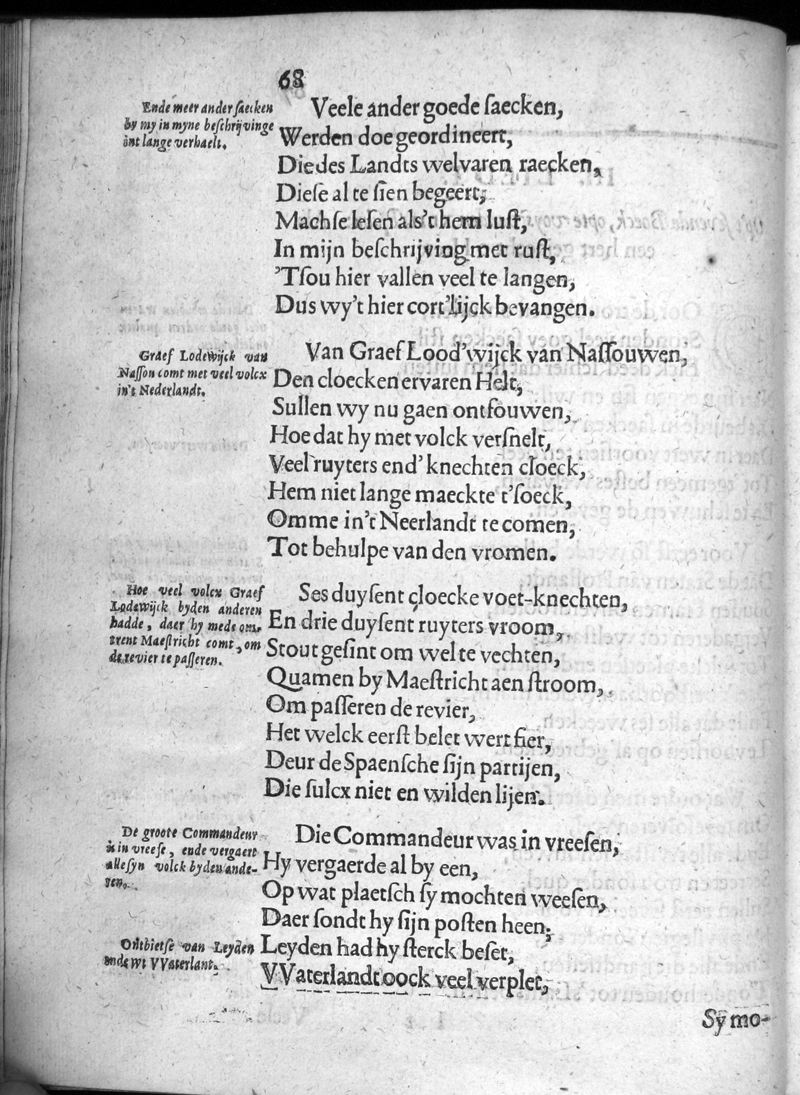 68
Ende meer ander saecken
by my in myne beschrijvinge
int lange verhaelt.
Veele ander goede saecken,
Werden doe geordineert,
Die des Landts welvaren raecken,
Diese al te sien begeert,
Machse lesen als't hem lust,
In mijn beschrijving met rust,
'Tsou hier vallen veel te langen,
Dus wy't hier cort'lijck bevangen.
Graef Lodewijck van
Nassou comt met veel volcx
in't Nederlandt.
Van Graef Lood'wijck van Nassouwen,
Den cloecken ervaren Helt,
Sullen wy nu gaen ontfouwen,
Hoe dat hy met volck versnelt,
Veel ruyters end' knechten cloeck,
Hem niet lange maeckte t'soeck,
Omme in't Neerlandt te comen,
Tot behulpe van den vromen.
Hoe veel volcx Graef
Lodewijck byden anderen
hadde, daer hy mede om-
trent Maestricht comt, om
de revier te passeren.
Ses duysent cloecke voet-knechten,
En drie duysent ruyters vroom,
Stout gesint om wel te vechten,
Quamen by Maestricht aen stroom,
Om passeren de revier,
Het welck eerst belet wert fier,
Deur de Spaensche sijn partijen,
Die sulcx niet en wilden lijen.
De groote Commandeur
is in vreese, ende vergaert
alle syn volck byden ande-
ren.
Die Commandeur was in vreesen,
Hy vergaerde al by een,
Op wat plaetsch sy mochten weesen,
Daer sondt hy sijn posten heen;
Ontbietse van Leyden
ende wt VVaterlant.
Leyden had hy sterck beset,
VVaterlandt oock veel verplet,
Sy mo-